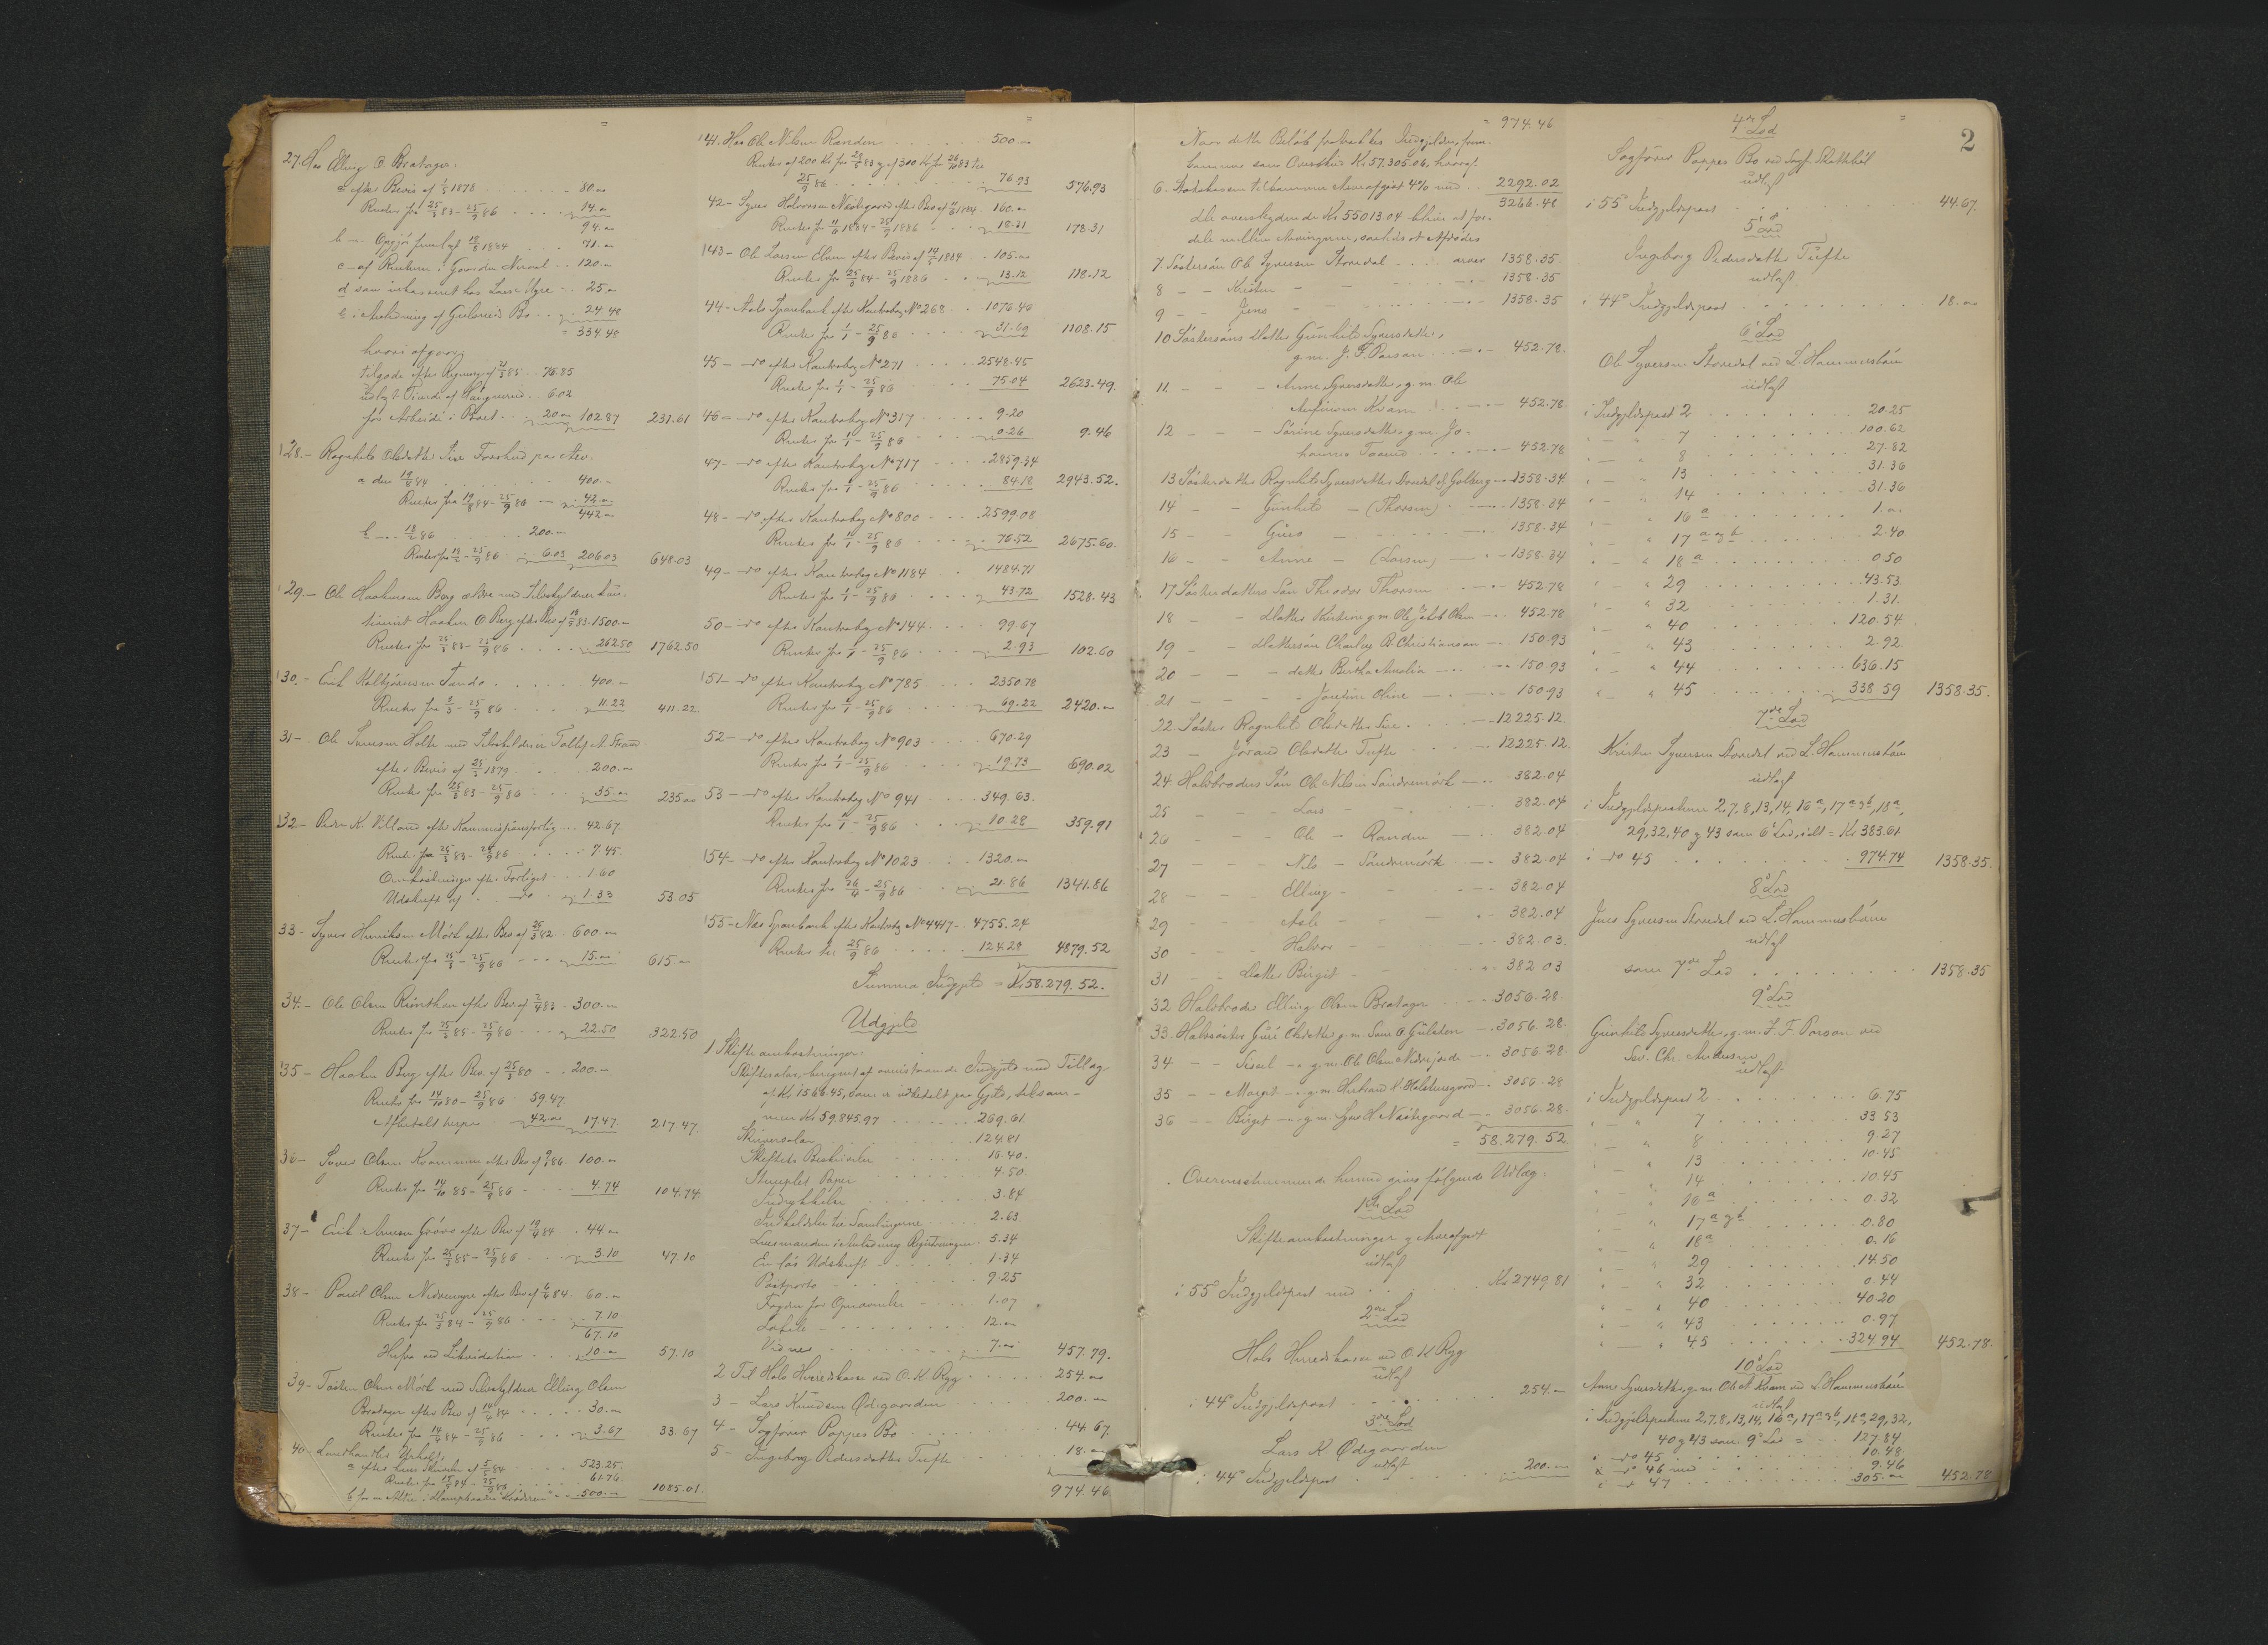 =
27. Hos Elling O. Bratager.
a efter Bevis af 1/5 1878 80.00
Renter fra 25/3 83 - 25/9 86 14.00
94.00
b - Opgjör 18/8 1884 71.00
c - af Renterne i Gaarden Nerval 120.00
d som inkasseret hos Lars Ugre 25.00
e i Anledning af Bo 24.48
= 334.48
hvori afgaar
tilgode efter Regning af 85 76.85
udlagt 6.02
for Arbeide i Boet 20.00 102.87 231.61
28. - Ragnhild Olsdatter Sire Forskud paa Arv.
a den 19/8 84 400.00
Renter fra 19/8 84 - 25/9 86 42.00
442.00
b - 18/2 86 200.00
Renter fra 18/2 - 25/9 86 6.03 206.03 648.03
29. - Ole Haakensen Berg ældre med Selvskyldner
Haaken O. Berg efter Bev. af 83. 1500.00
Renter fra 25/3 83 - 25/9 86 262.50 1762.50
30. - Erik Kolbjörnsen Sando 400.00
Renter fra 3/3 - 25/9 86 11.22 411.22
31 - Ole Svensen Holte med Selvskyldner Tollef A. Strand
efter Bevis af 25/3 1879 200.00
Renter fra 25/3 83 - 25/9 86 35.00 235.00
32 - Peder K. Villand efter Kommissionsforlig 42.67.
Renter fra 25/3 83 - 25/9 86 7.45.
Omkostninger efter Forliget 1.60
Udskrift af do 1.33 53.05
33 - Syver Henriksen Mörk efter Bev. af 25/3 82 600.00
Renter fra 25/3 - 25/9 86 15.00 615.00
34. - Ole Olsen efter Bev. af 83 300.00
Renter fra 25/3 85 - 25/9 86 22.50 322.50
35 - Haaken Berg efter Bev. af 25/3 80 200.00
Renter fra 14/10 80 - 25/9 86 59.47.
Afbetalt herpaa 42.00 17.47 217.47.
36 - Syver Olsen efter Bev. af 86 100.00
Renter fra 14/10 85 - 25/9 86 4.74 104.74
37 - Erik Arnesen efter Bev. af 84 44.00
Renter fra 25/3 85 - 25/9 86 3.10 47.10
38 - Paul Olsen efter Bev. af 84. 60.00
Renter fra 25/3 84 - 25/9 86 7.10
67.10
Herfra ved Likvidation 10.00 57.10
39 - Torsten Olsen Mörk med Selvskyldner Elling Olsen
Bratager efter Bev. af 14/4 84 30.00
Renter fra 14/4 84 - 25/9 86 3.67 33.67
40 - Landhandler
a efter hans Skrivelse af 5/5 84 523.25
Renter fra 84 - 25/9 86 61.76
b for en Aktie i Dampbaaden "Krøderen" 500.00 1085.01.
=
41. Hos Ole Nilsen Randen 500.00
Renter af 200 Kr. fra 25/3 83 og af 300 Kr. fra 26/10 83 til
25/9 86 76.93 576.93
42 - Syver Halvorsen Næsbegaard efter Bev. af 1884. 160.00
Renter fra 1884 - 25/9 1886 18.31 178.31
43 - Ole Larsen efter Bevis af 14/5 1884 105.00
Renter fra 25/3 84 - 25/9 1886 13.12 118.12
44 - Aals Sparebank efter Kontrabog No 268 1076.46
Renter fra 1/1 - 25/9 86 31.69 1108.15
45 - do efter Kontrabog No 271 2548.45
Renter fra 1/1 - 25/9 86 75.04 2623.49.
46 - do efter Kontrabog No 317 9.20
Renter fra 1/1 - 25/9 86 0.26 9.46
47 - do efter Kontrabog No 717 2859.34
Renter fra 1/1 - 25/9 86 84.18 2943.52.
48 - do efter Kontrabog No 800 2599.08
Renter fra 1/1 - 25/9 86 76.52 2675.60.
49 - do efter Kontrabog No 1184 1484.71
Renter fra 1/1 - 25/9 86 43.72 1528.43
50 - do efter Kontrabog No 144 99.67
Renter fra 1/1 - 25/9 86 2.93 102.60
51 - do efter Kontrabog No 785 2350.78
Renter fra 1/1 - 25/9 86 69.22 2420.00
52 - do efter Kontrabog No 903 670.29
Renter fra 1/1 - 25/9 86 19.73 690.02
53 - do efter Kontrabog No 941 349.63.
Renter fra 1/1 - 25/9 86 10.28 359.91
54 - do efter Kontrabog No 1023 1320.00
Renter fra - 25/9 86 21.86 1341.86
55 - Næs Sparebank efter Kontrabog No 4417 4755.24
Renter til 25/9 86 124.28 4879.52
Summa Indgjæld = Kr. 58.279.52.
Udgjæld
1 Skifteomkostninger:
Skiftesalær, beregnet af ovenstaaende Indgjæld med Tillæg
af Kr. 1566.45, som er udbetalt paa Gjæld, tilsam-
men Kr. 59.845.97 269.61
Skriversalær 124.81
Skiftets Beskrivelse 16.40.
Stemplet Papir 4.50
3.84
Indkaldelse til Samlingerne 2.63
Lensmanden i Anledning Registreringen 5.34
En lös Udskrift 1.34
Postporto 9.25
Fogden for 1.07
Lokale 12.00
Vidner 7.00 457.79.
2 Til Hols Herredskasse ved O. K. Ryg 254.00
3 - Lars Knudsen Ødegaarden 200.00
4 - Sagförer Poppes Bo 44.67.
5 - Ingeborg Pedersdatter Tufte 18.00
974.46
= 974.46
Naar dette Belöb fratrækkes Indgjælden, frem-
kommer som Overskud Kr. 57.305.06, hvoraf
6. Statskassen tilkommer Arveafgift 4% med 2292.02
3266.48
det overskydende Kr. 55013.04 bliver at for-
dele mellem Arvingerne, saaledes at Afdödes
7. Söstersön Ole Syversen Storedal arver 1358.35.
8 - - Kristen - - 1358.35
9 - - Jens - - 1358.35
10 Söstersöns Datter Gunhild Syversdatter,
g. m. J. F. Parson - 452.78.
11. - - - Anne Syversdatter, g. m. Ole
Kvam - 452.78.
12 - - - Sörine Syversdatter, g. m. Jo-
hannes - 452.78
13 Sösterdatter Ragnhild Syversdatter - 1358.34.
14 - - Gunhild - (Thorsen) - 1358.34
15 - - Guro - - 1358.34
16 - - Anne - (Larsen) - 1358.34
17 Sösterdatters Sön Theodor Thorsen - 452.78
18 - - Datter Kirstine g. m. Ole Jakob Olsen - 452.78
19 - - Dattersön Charley B. Christianson - 150.93
20 - - - datter Bertha Amalia - 150.93
21 - - - Josefine Oline - 150.93
22. Söster Ragnhild Olsdatter Sire - 12225.12.
23 - Jörand Olsdatter Tufte - 12225.12.
24. Halvbroders Sön Ole Nilsen Söndremörk - 382.04
25 - - Lars - - 382.04
26 - - Ole - Randen - 382.04
27 - - Nils - Söndremörk - 382.04
28 - - Elling - - 382.04
29 - - Asle - - 382.04
30 - - Halvor - - 382.03.
31 - - Datter Birgit - 382.03
32 Halvbroder Elling Olsen Bratager 3056.28
33. Halvsöster Guri Olsdatter g. m. Sven O. Gulsten - 3056.28.
34 - - Sissel - g. m. Ole Olsen - 3056.28.
35 - - Margit - g. m. Herbrand - 3056.28
36 - - Birgit - g. m. Næsbegaard - 3056.28.
= 58.279.52.
Overensstemmende hermed gives fölgende Udlæg:
1ste Lod
Skifteomkostninger og Arveafgift
udlagt
i 55o Indgjeldspost med Kr. 2749.81
2det Lod
Hols Herredskasse ved O. K. Ryg
udlagt
i 44o Indgjeldspost 254.00
3die Lod
Lars K. Ødegaarden
udlagt
i 44o Indgjeldspost 200.00
4de Lod
=
2
Sagförer Poppes Bo ved Sagf.
udlagt
i 55o Indgjeldspost 44.67.
5te Lod
Ingeborg Pedersdatter Tufte
udlagt
i 44o Indgjeldspost 18.00
6te Lod
Ole Syversen Storedal ved L. Hammersbön
udlagt
i Indgjeldspost 2 20.25
- " 7 100.62
- " 8 27.82
- " 13 31.36
- " 14 31.36
- " 16 a 1.00
- " 17 a og b 2.40
- " 18 a 0.50
- " 29 43.53.
- " 32 1.31.
- " 40 120.54
- " 43 2.92
- " 44 636.15
- " 45 338.59 1358.35.
7de Lod
Kristen Syversen Storedal ved L. Hammersbön
udlagt
i Indgjeldsposterne 2, 7, 8, 13, 14, 16 a, 17 a og b, 18 a,
29, 32, 40 og 43 som 6te Lod, ialt = Kr. 383.61
i do 45 974.74 1358.35.
8de Lod
Jens Syversen Storedal ved L. Hammersbön
udlagt
som 7de Lod 1358.35
9de Lod
Gunhild Syversdatter, g. m. J. F. Parson ved
Sev. Chr. Andersen
udlagt
i Indgjeldspost 2 6.75
- " 7 33.53
- " 8 9.27
- " 13 10.45
- " 14 10.45
- " 16 a 0.32
- " 17 a og b 0.80
- " 18 a 0.16
- " 29 14.50
- " 32 0.44
- " 40 40.20
- " 43 0.97
- " 45 324.94 452.78.
10de Lod
Anne Syversdatter, g. m. Ole A. Kvam ved L. Hammersbön
udlagt
i Indgjeldsposterne 2, 7, 8, 13, 14, 16 a, 17 a og b, 18 a, 29, 32,
40 og 43 som 9de Lod = 127.84
i do 45 10.48
" do 46 med 9.46
" do 47 305.00 452.78